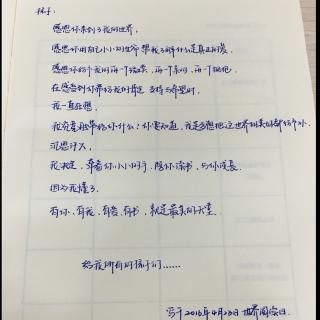 孩子:
感恩你来到了我的世界,
感恩你用自己小小的世界带我了解什么是真正的爱,
感恩你给予我的每一个微笑,每一个亲吻,每一个拥抱.
在感觉到你带给我的肯定 支持与希望时,
我一直在想,
我究竟能带给你什么?你要知道,我是多想把这世界的美好都给予你.
沉思许久,
我决定,牵着你小小的手,陪你读书,与你成长.
因为我懂了,
有你,有我,有爱,有书,就是最美的天堂.
给我所有的孩子们......
写于2016年4月23日 世界阅读日.